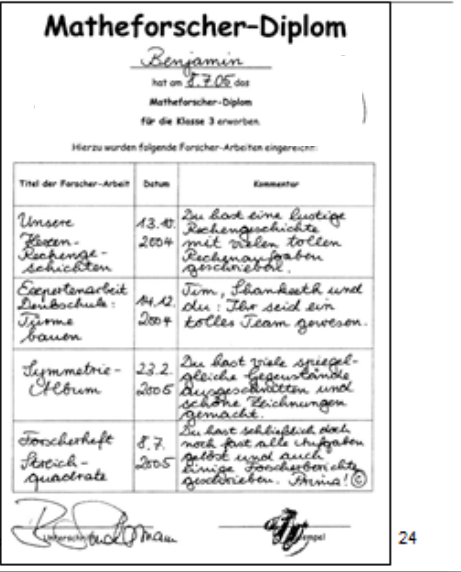 Matheforscher-Diplom
Benjamin
hat am 8.7.05 das
Matheforscher-Diplom
für die Klasse 3 erworben.
Hierzu wurden folgende Forscher-Arbeiten eingereicht:
Titel der Forscher-Arbeit Datum Kommentar
Unsere
Hexen-
Rechenge-
schichten
13.10.
2004
Du hast eine lustige
Rechengeschichte
mit vielen tollen
Rechenaufgaben
geschrieben.
Expertenarbeit
Denkschule:
Türme
bauen
14.12.
2004
Tim, Shankeeth und
du: Ihr seid ein
tolles Team gewesen.
Symmetrie-
Album
23.2.
2005
Du hast viele spiegel-
gleiche Gegenstände
ausgeschnitten und
schöne Zeichnungen
gemacht.
Forscherheft
Streich-
quadrate
8.7.
2005
Du hast schließlich doch
noch fast alle Aufgaben
gelöst und auch
einige Forscherberichte
geschrieben. Prima!
Unterschrift
24